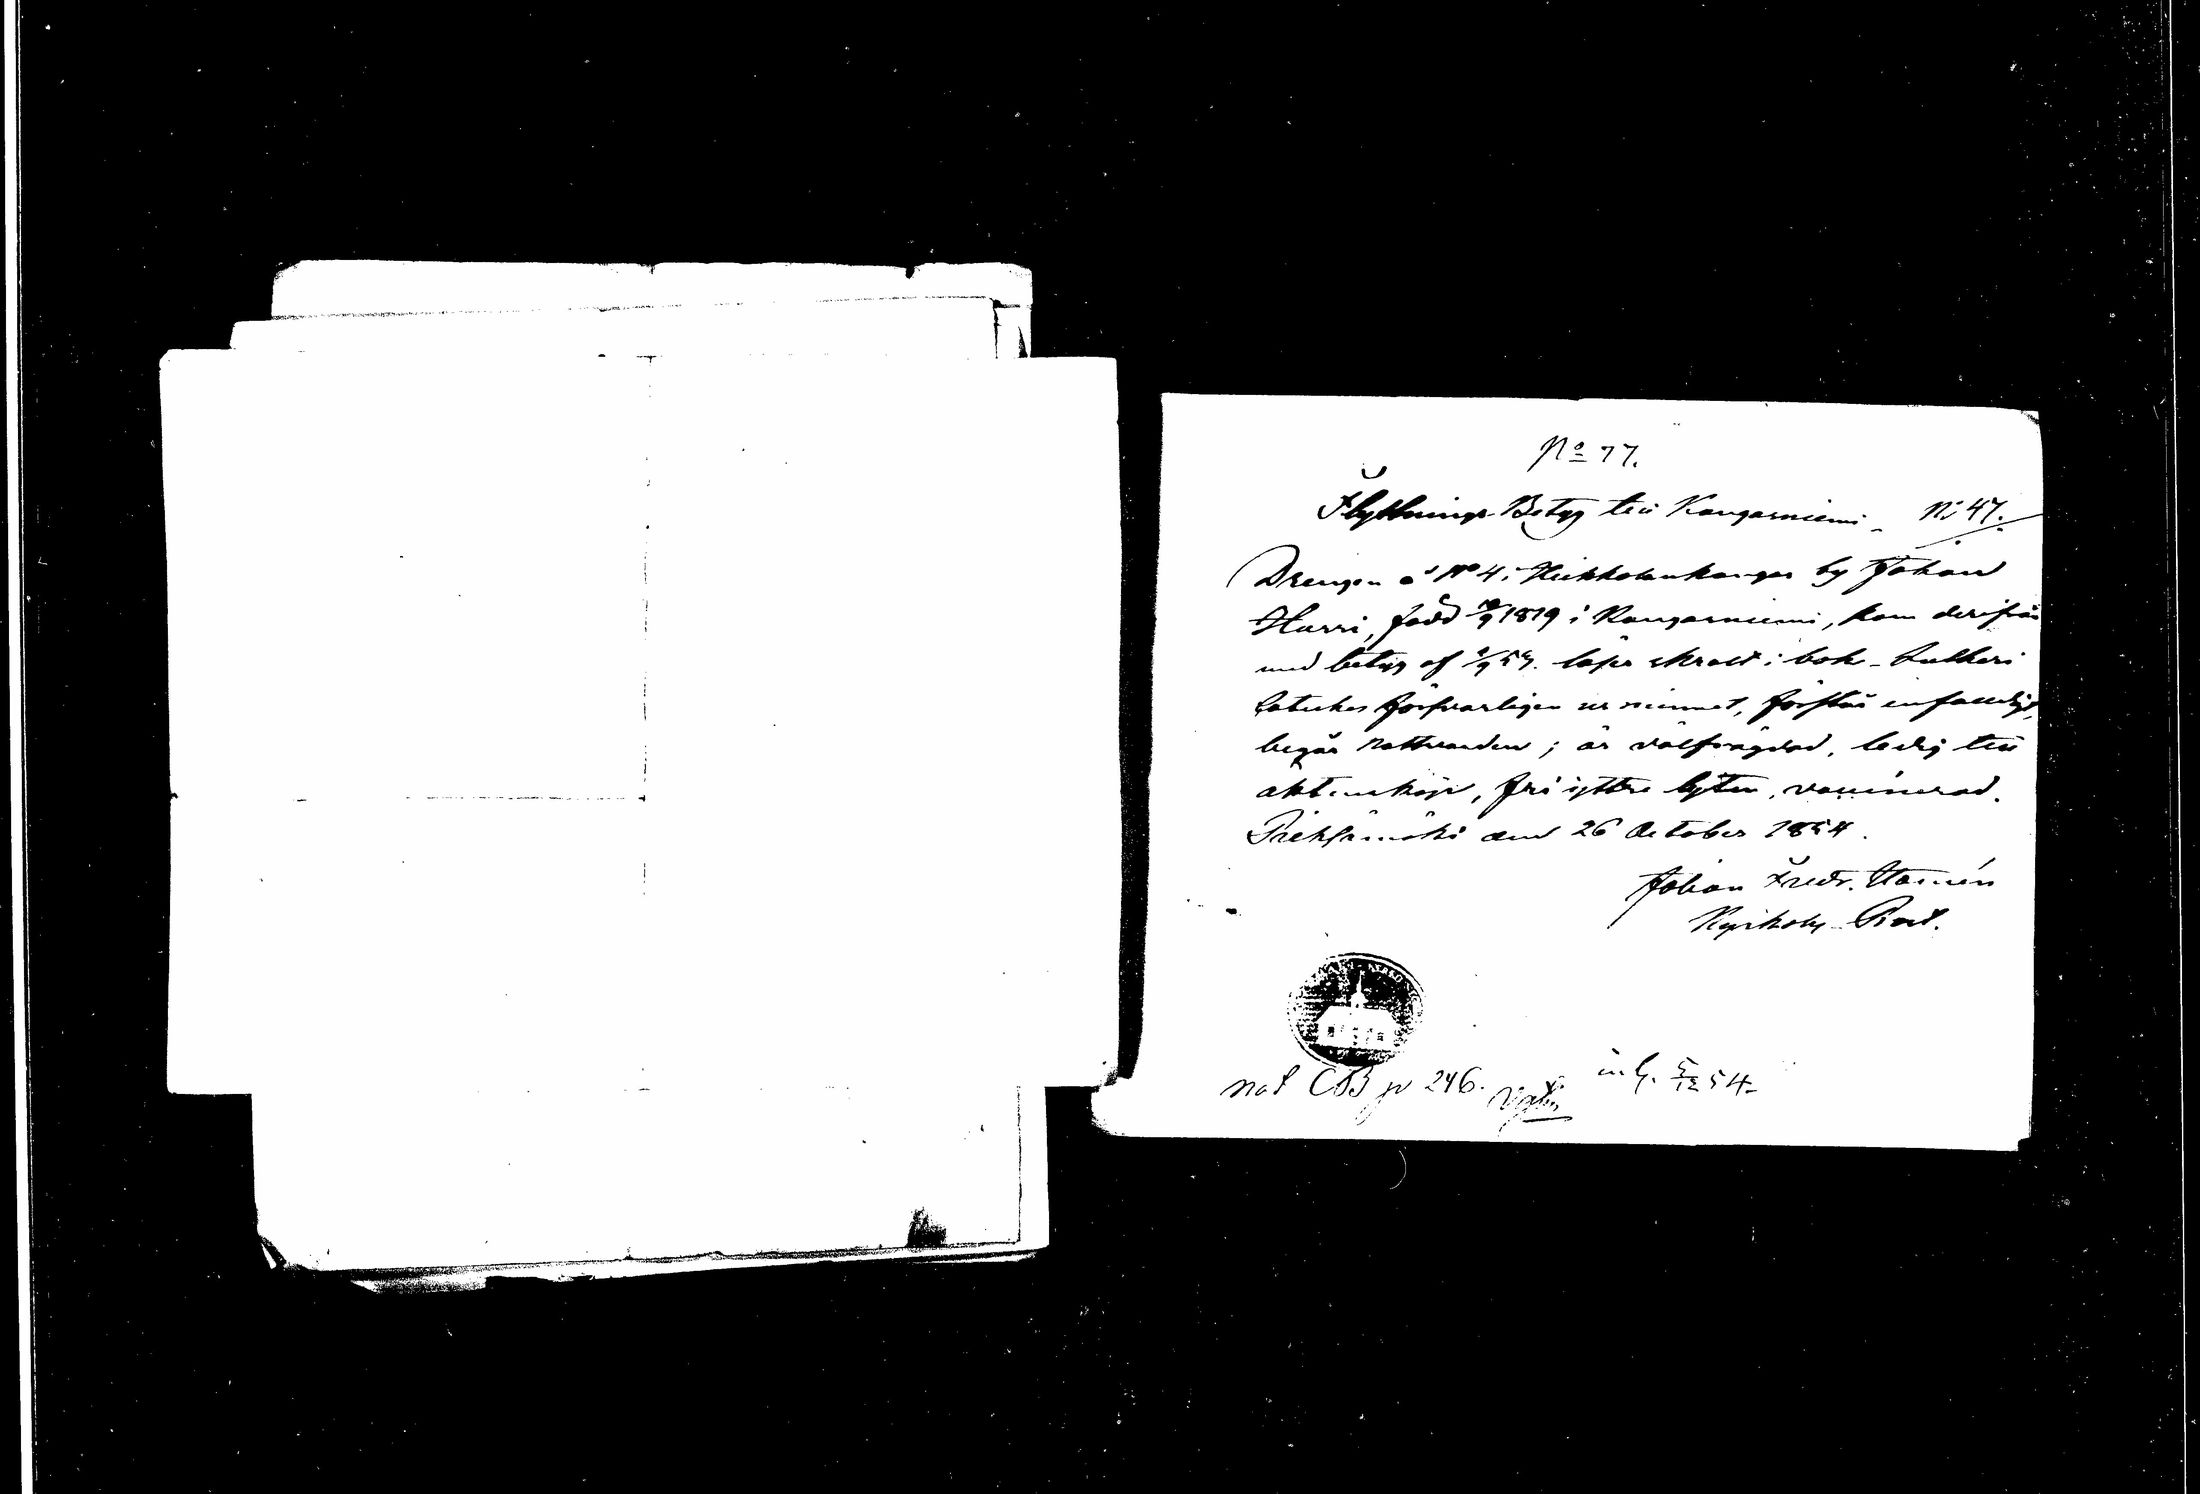 No 77.
Flyttnings-Betyg till Kangasniemi - No 47.
Drengen å No 4 i Heikkolankangas by Johan
Hurri, född /9 1819 i Kangasniemi, kom derifrån
med betyg af 1/9 54. läser skralt i bok - Lutheri
Cateches försvarligen ur minnet, förstår enfaldigt,
begår nattvarden; är välfrägdad, ledig till
äktenskap, fri yttre lyten, vaccinerad.
Pieksämäki den 26 October 1854.
Johan Fredr.
Kyrkoh. Past.
not CBB p 246. inl. 5/12 54